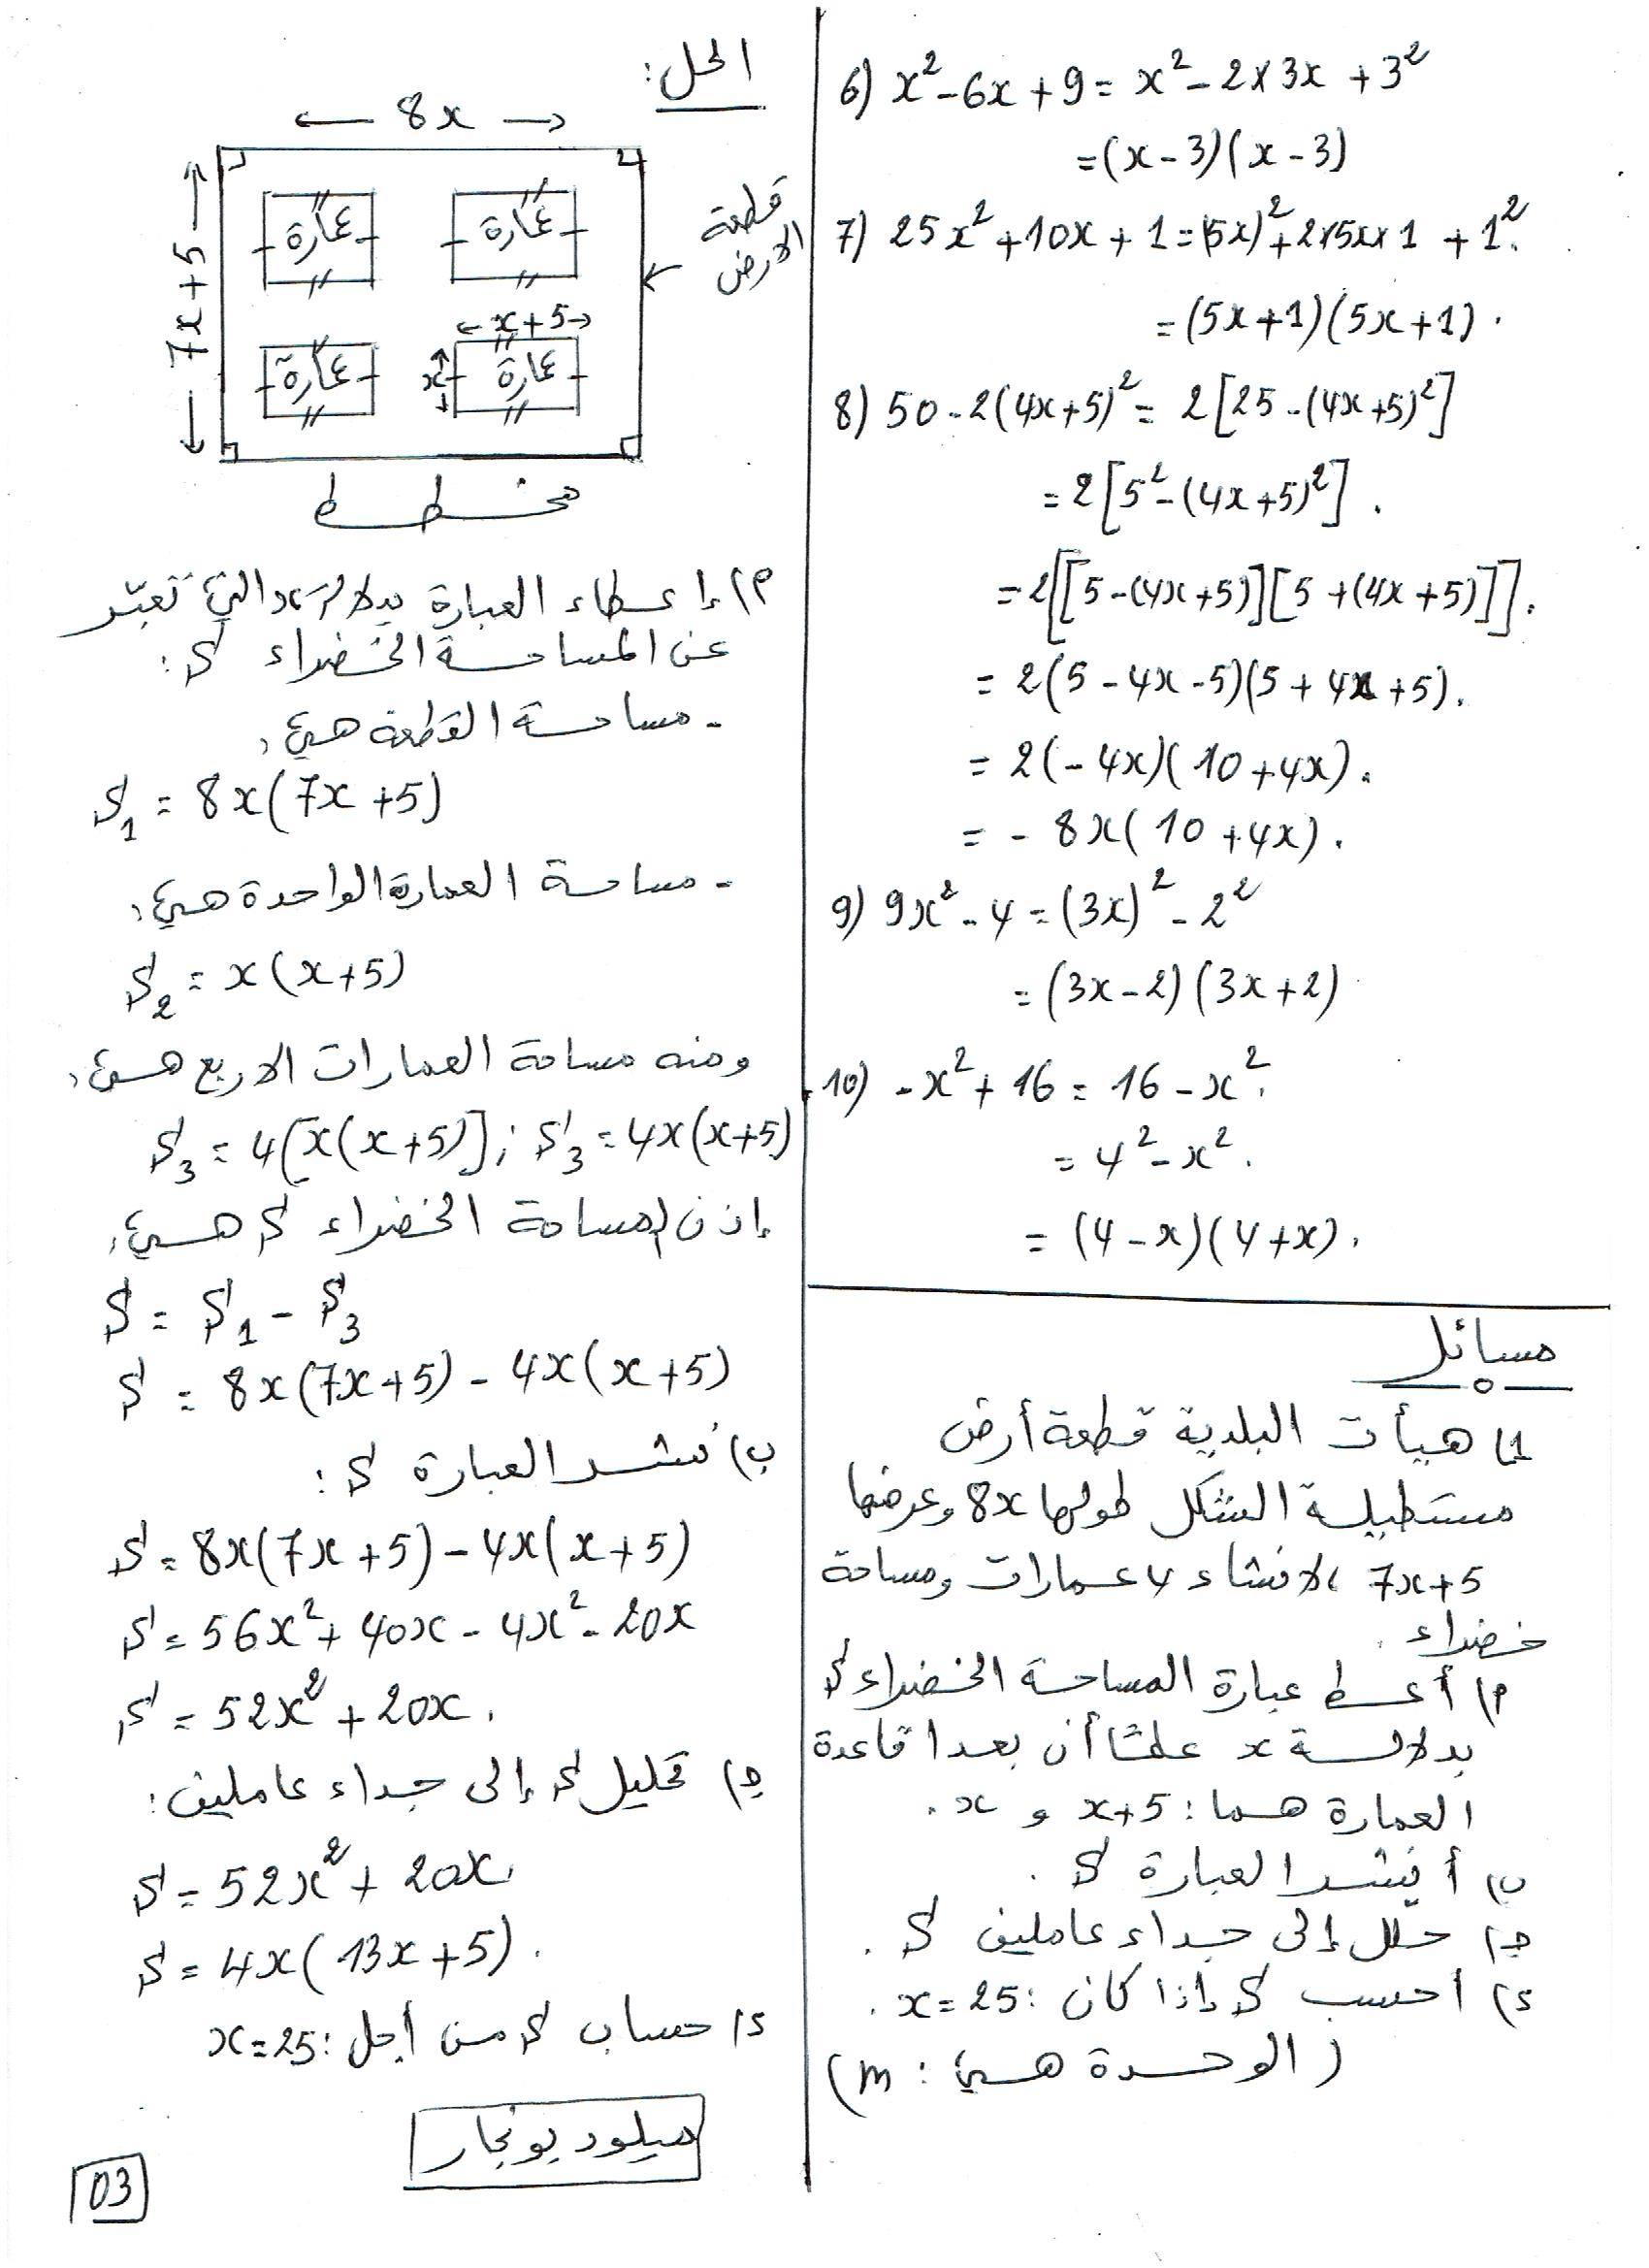 6) x² - 6x + 9 = x² - 2 × 3x + 3²
= (x - 3)(x - 3)
7) 25x² + 10x + 1 = (5x)² + 2×5x×1 + 1².
= (5x + 1)(5x + 1).
8) 50 - 2(4x+5)² = 2[25 - (4x+5)²]
= 2[5² - (4x+5)²].
= 2[[5-(4x+5)][5+(4x+5)]].
= 2(5 - 4x - 5)(5 + 4x + 5).
= 2(-4x)(10 + 4x).
= - 8x(10 + 4x).
9) 9x² - 4 = (3x)² - 2²
= (3x - 2)(3x + 2)
10) -x² + 16 = 16 - x².
= 4² - x².
= (4 - x)(4 + x).
مسائل
1) هيأت البلدية قطعة أرض
مستطيلة الشكل طولها 8x وعرضها
7x+5 ،لانشاء 4 عمارات ومساحة
خضراء.
م) أعط عبارة المساحة الخضراء S
بدلالة x علمًا أن بعدا قاعدة
العمارة هما: x+5 و x.
ب) أنشر العبارة S.
ج) حلل إلى جداء عاملين S.
د) احسب S إذا كان: x=25.
(الوحدة هي: m)
الحل:
8x
7x+5
عمارة
عمارة
قطعة
الارض
x+5
عمارة
x
عمارة
مخطط
م) إعطاء العبارة بدلالة x التي تعبّر
عن المساحة الخضراء S:
- مساحة القطعة هي:
S₁ = 8x(7x+5)
- مساحة العمارة الواحدة هي:
S₂ = x(x+5)
ومنه مساحة العمارات الاربع هي:
S₃ = 4[x(x+5)] ; S₃ = 4x(x+5)
إذن المساحة الخضراء S هي:
S = S₁ - S₃
S = 8x(7x+5) - 4x(x+5)
ب) نشر العبارة S:
S = 8x(7x+5) - 4x(x+5)
S = 56x² + 40x - 4x² - 20x
S = 52x² + 20x.
ج) تحليل S إلى جداء عاملين:
S = 52x² + 20x
S = 4x(13x+5).
د) حساب S من أجل: x=25
ميلود بونجار
03